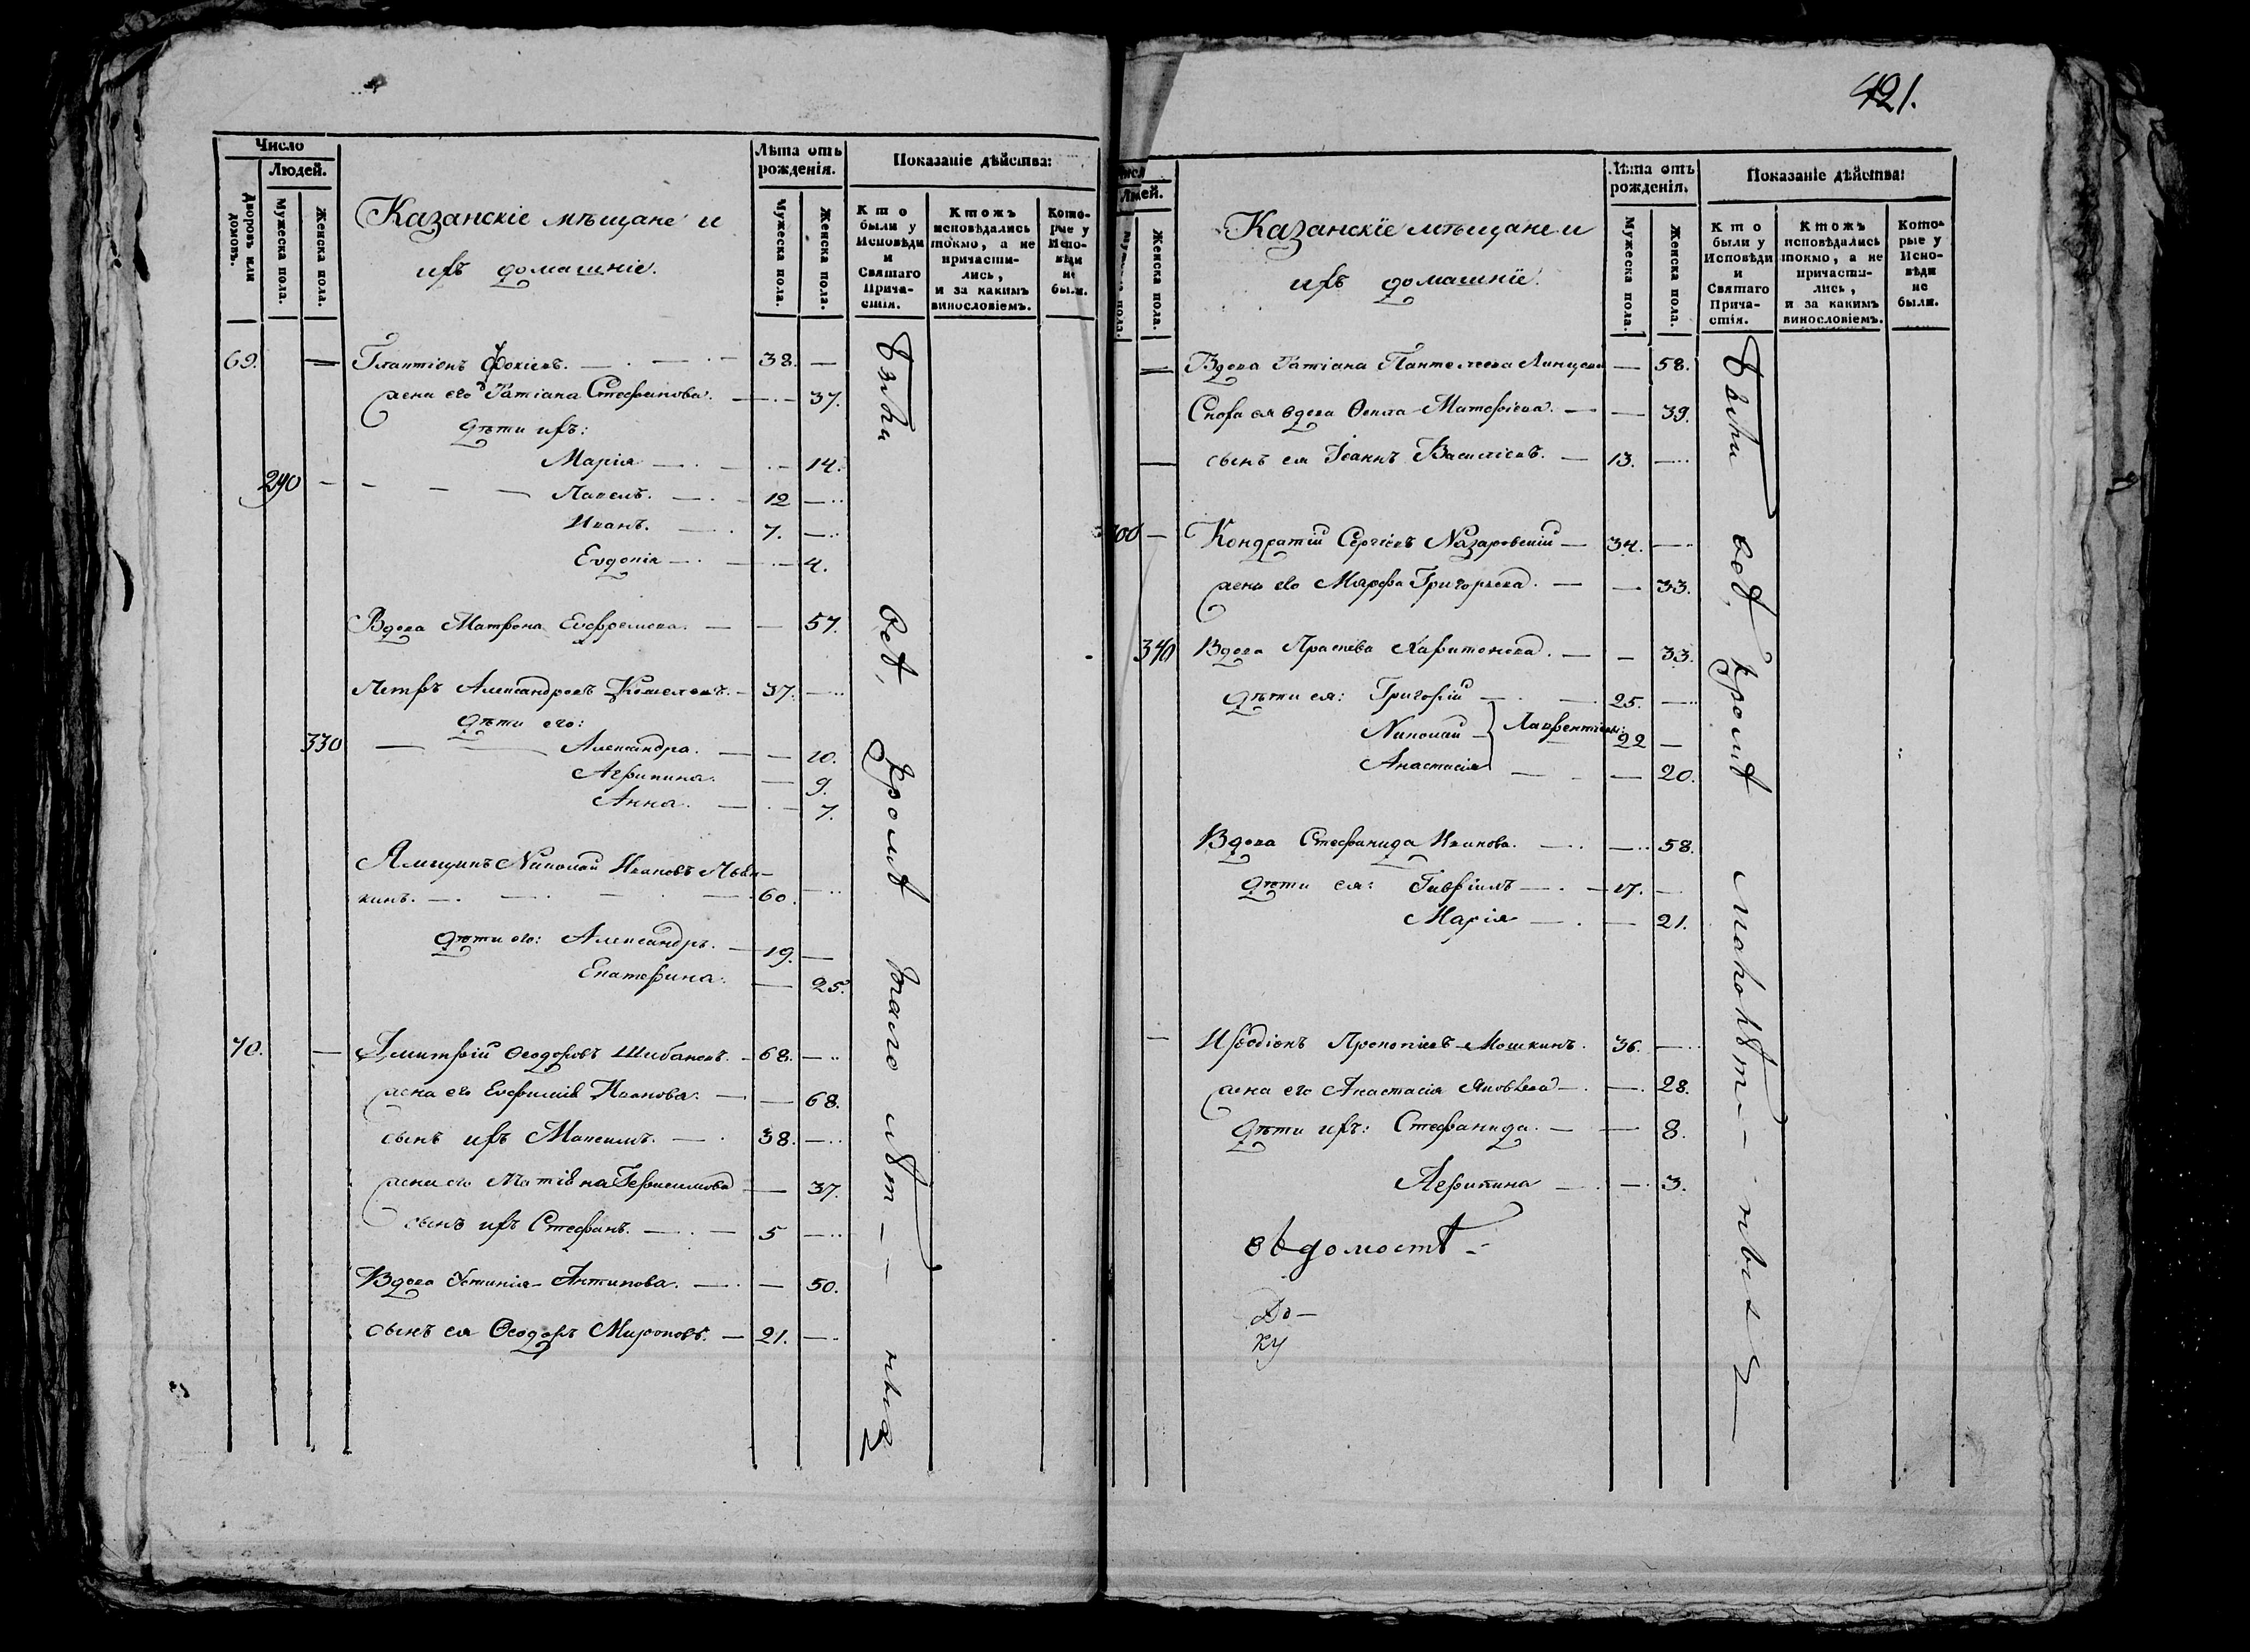 421.
Число
Людей.
Дворовъ или домовъ.
Мужеска пола.
Женска пола.
Казанскіе мѣщане и
ихъ домашніе.
Лѣта отъ
рожденія.
Мужеска пола.
Женска пола.
Показаніе дѣйства:
Кто
были у
Исповѣди
и
Святаго
Прича-
стія.
Ктожъ
исповѣдались
токмо, а не
причасти-
лись,
и за какимъ
винословіемъ.
Кото-
рые у
Испо-
вѣди
не
были.
69. — — 38. —
жена его Татіана Стефанова. — 37.
дѣти ихъ:
Марія — 14.
290 — Павелъ. — 12 —
Иванъ. — 7. —
Евдокія — 4.
Вдова Матрона Евфремова. — — 57.
Петръ Александровъ — 37. —
дѣти его:
330 — Александра. — — 10.
Агрипина. — 9.
Анна. — 7.
Николай Ивановъ
кинъ. — 60. —
дѣти его: Александръ. — 19. —
Екатерина. — 25.
70. — Димитрій Ѳеодоровъ Шибановъ. — 68. —
жена его Евфимія Иванова. — — 68.
сынъ ихъ Максимъ. — 38. —
жена его Герасимова — 37.
сынъ ихъ Стефанъ. — 5 —
Вдова Устинія Антипова. — — 50.
сынъ ея Ѳеодоръ Мироновъ. — 21. —
Были всѣ, кромѣ мало лѣт — —
Людей.
Женска пола.
Казанскіе мѣщане и
ихъ домашніе.
Лѣта отъ
рожденія.
Мужеска пола.
Женска пола.
Показаніе дѣйства:
Кто
были у
Исповѣди
и
Святаго
Прича-
стія.
Ктожъ
исповѣдались
токмо, а не
причасти-
лись,
и за какимъ
винословіемъ.
Кото-
рые у
Испо-
вѣди
не
были.
Вдова Татіана Пантелеева — 58.
Сноха ея вдова Ѳекла — — 39.
сынъ ея Іоаннъ Василіевъ. — 13. —
300 — Кондратій Сергіевъ Назаровскій — 34. —
жена его Марфа Григорьева. — — 33.
340 Вдова Праскева Харитонова. — — 33.
дѣти ея: Григорій — 25. —
Николай — Лаврентіевы 22 —
Анастасія — — 20.
Вдова Стефанида Иванова. — — 58.
дѣти ея: Гавріилъ — 17. —
Марія — — 21.
— Иродіонъ Прокопіевъ Мошкинъ. 36. —
жена его Анастасія Яковлева — — 28.
дѣти ихъ: Стефанида. — — 8.
Агрипина — — 3.
вѣдомостѣ
До —
ку
Были всѣ, кромѣ малолѣт —